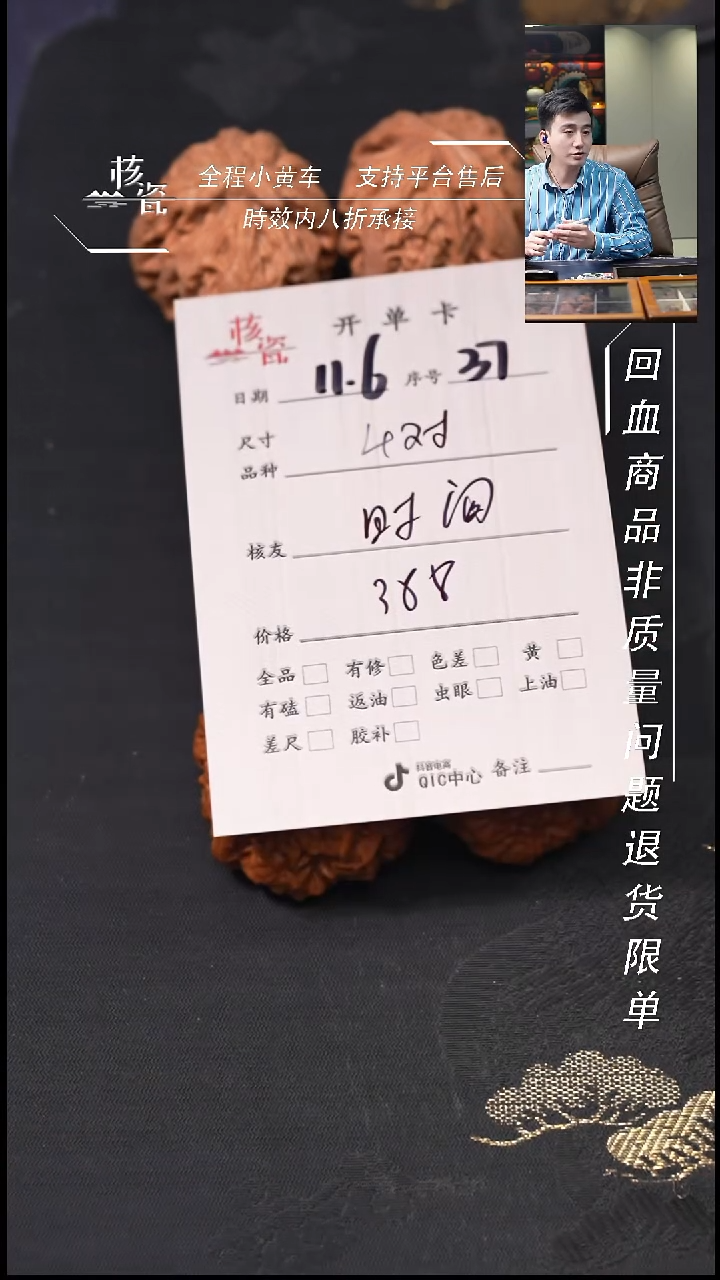 核瓷
全程小黄车 支持平台售后
時效内八折承接
回血商品非质量问题退货限单
核瓷
开单卡
日期 11.6 序号 37
尺寸
品种 4对
核友 时间
价格 368
全品 有修 色差 黄
有磕 返油 虫眼 上油
差尺 胶补
抖音电商
QIC中心 备注